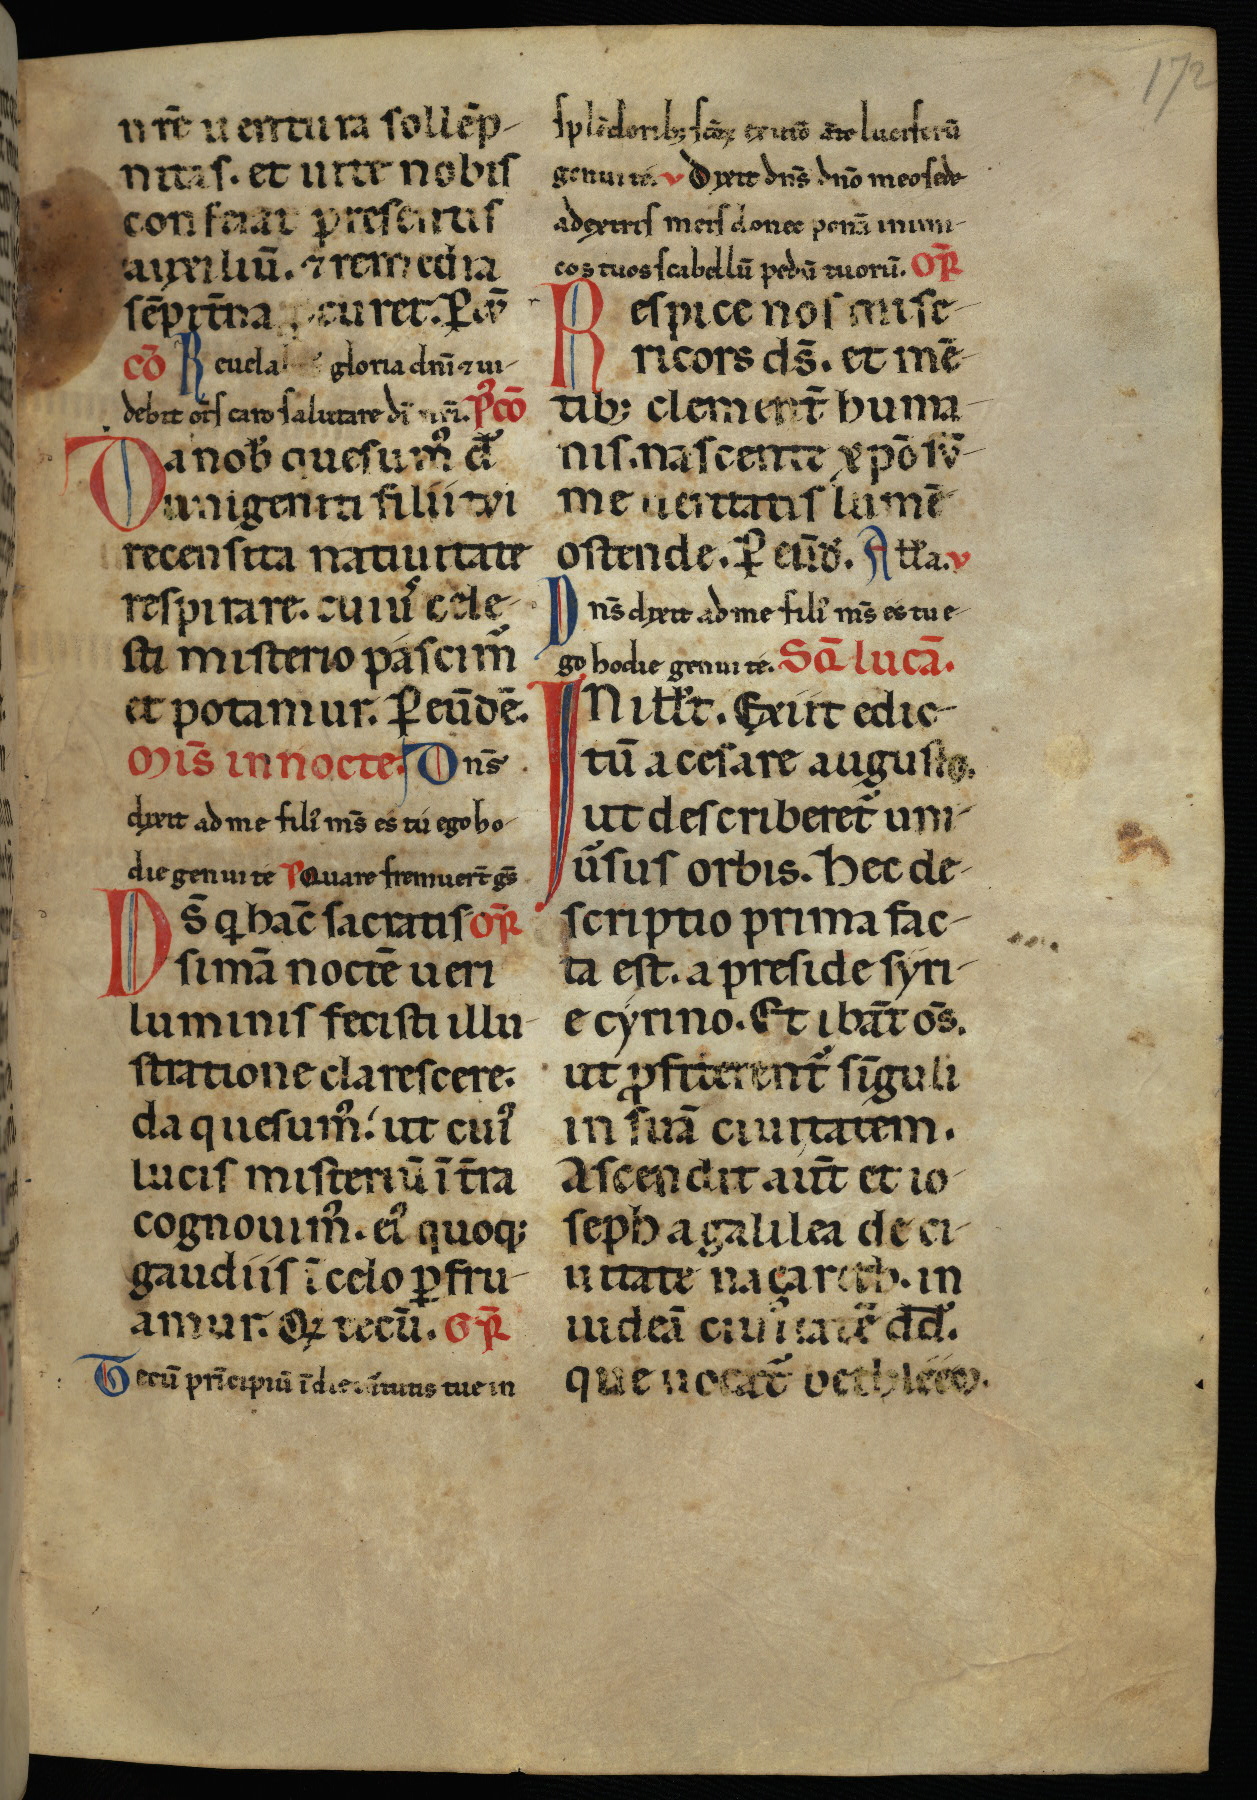 172
nr̄e uentura sollēp-
nitas. et uite nobis
conferat presentis
auxiliū. ⁊ remedia
sēpit̄na curet. P̱ ow̄
cō Reuela gloria dnī ⁊ ui-
debit oīs caro salutare dī nr̄i. p̄cō
Da nob̄ quesum᷒ d̄s
unigeniti filii tui
recensita natiuitate
respirare. cuiu᷒ cele-
sti misterio pascim᷒
et potamur. P̱ eūdē.
Mīs in nocte. Dn̄s
dixit ad me fili᷒ m̄s es tu ego ho-
die genui te P̱ Quare fremuer̄t gs̄
Ds̄ q̇ hāc sacratis oR̄
simā noctē ueri
luminis fecisti illu-
stratione clarescere.
da quesum᷒. ut cui᷒
lucis misteriū ī t̄ra
cognouim᷒. ei᷒ quoq;
gaudiis ī celo ꝑfru-
amur. Q⁊ tecū. GR̄
Tecū prīcipiū ī die uir̄tutis tue in
splēdorib; scōꝝ ex uto āte luciferū
genui te. v Dixit dn̄s dnō meo sede
a dextris meis donec ponā inimi-
cos tuos scabellū pedū tuorū. oR̄
Respice nos mise-
ricors ds̄. et mē-
tib; clement᷒ huma-
nis. nascente xpō sū-
me ueritatis lumē
ostende. P̱ eūd̄. All̄a. v
Dn̄s dixit ad me fili᷒ m̄s es tu e-
go hodie genui te. Sc̄d lucā.
IN ill̄ t. Exiit edic-
tū a cesare augusto.
ut describeret᷒ uni-
ūsus orbis. Hec de-
scriptio prima fac-
ta est. a preside syri-
e cyrino. Et ibāt os̄.
ut ꝓfiterent᷒ singuli
in suā ciuitatem.
Ascendit aut̄ et io-
seph a galilea de ci-
uitate naçareth. in
iudeā ciuitatē dd̄.
que uocat᷒ bethleem.